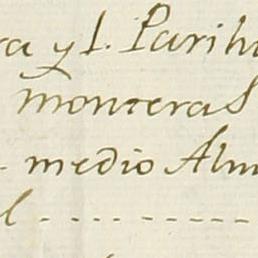 ra y l. Parih
monteras
- medio Alm
l - - - - - - - - - -